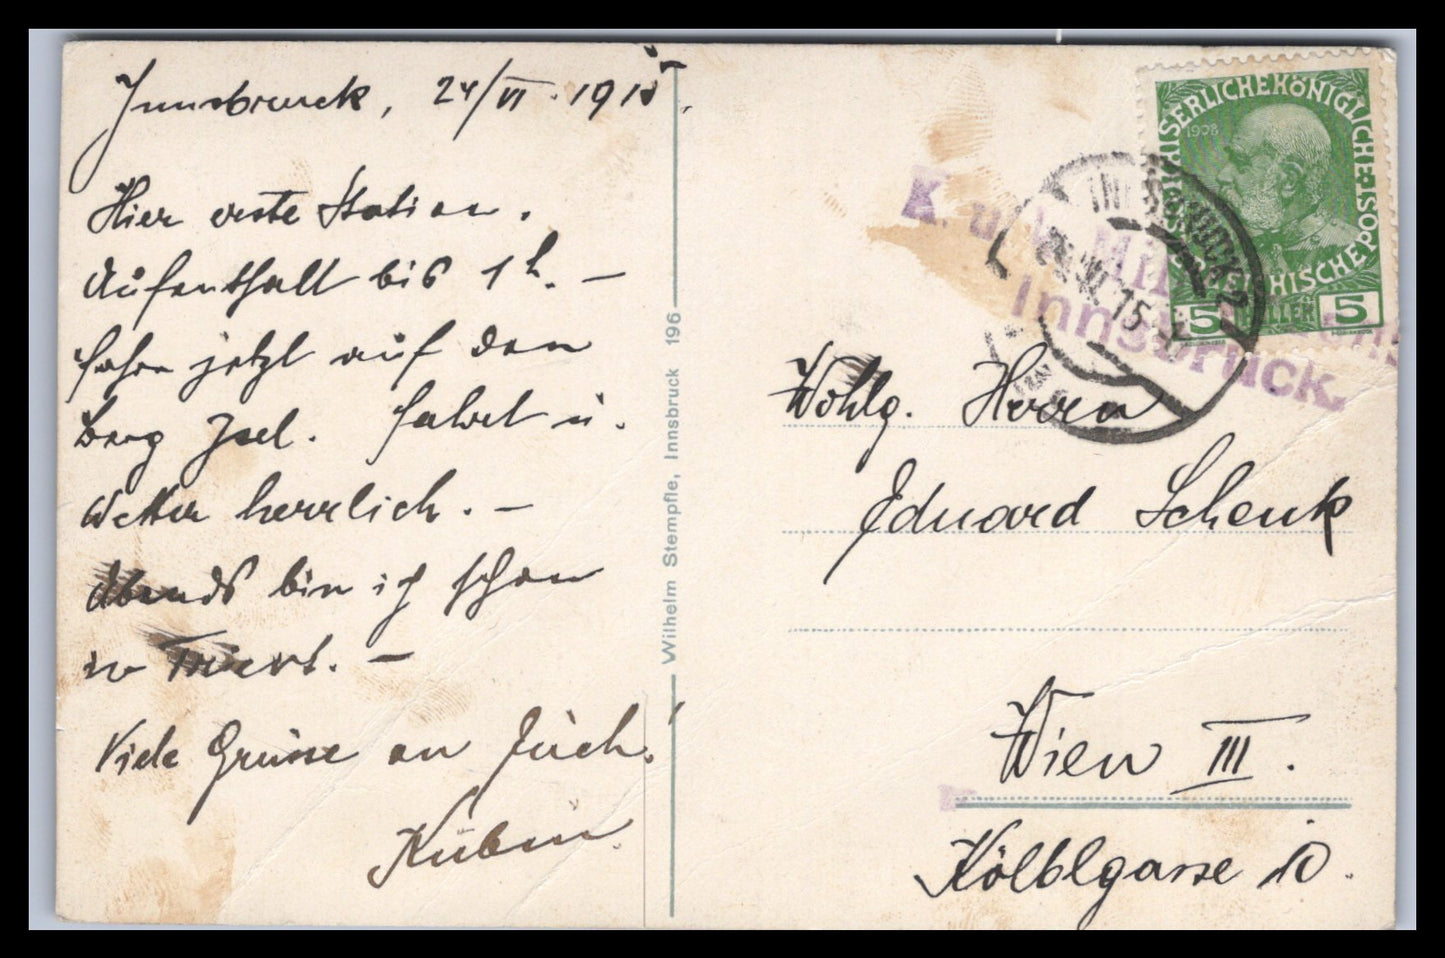 Innsbruck, 24/VI. 1915.
Hier erste Station.
Aufenthalt bis 1h. –
fahre jetzt auf den
Berg Isel. Fahrt u.
Wetter herrlich. –
Abends bin ich schon
in
Viele Grüsse an Euch.
Wilhelm Stempfle, Innsbruck 196
KAISERLICHEKÖNIGLICHE
ÖSTERREICHISCHE POST
1908
5 HELLER 5
INNSBRUCK 2
24.VI.15
K. u. k. Mil
Innsbruck.
Wohlg. Herrn
Eduard Schenk
Wien III.
Kölblgasse 10.